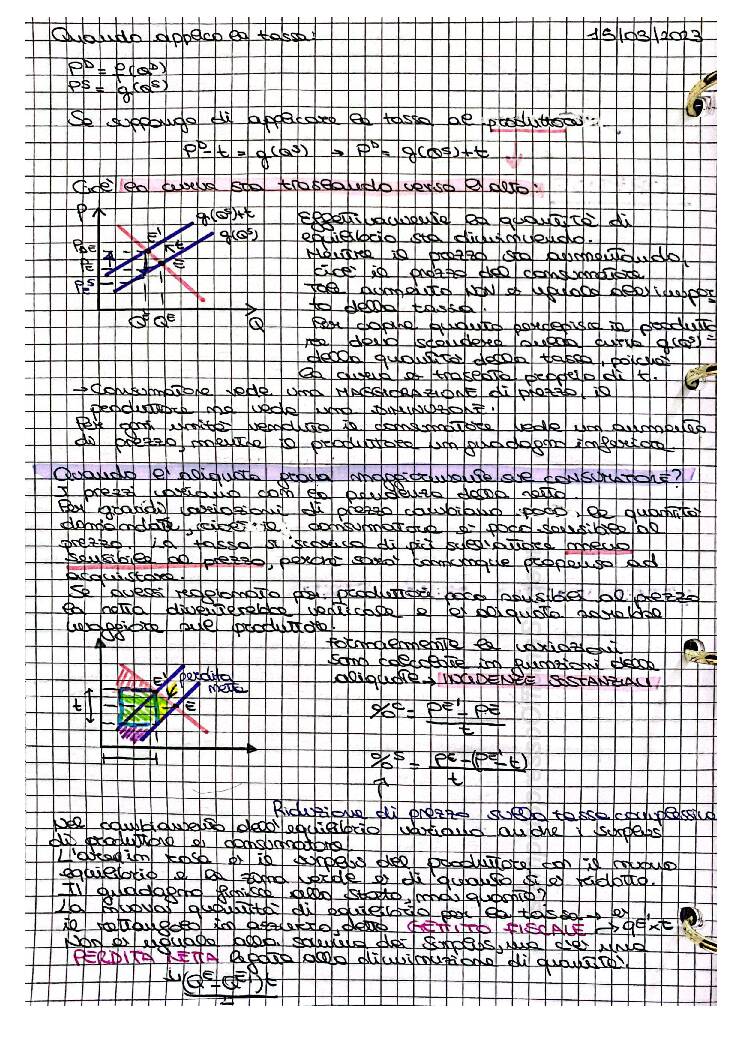 Quando applico la tassa:
15/03/2023
P^D = f(Q^D)
P^S = g(Q^S)
Se suppongo di applicare la tassa al produttore:
P^D - t = g(Q^S) → P^D = g(Q^S) + t
Cioè la curva sta traslando verso l'alto:
P
g(Q^S)+t
g(Q^S)
E'
t
E
Q
Effettivamente la quantità di
equilibrio sta diminuendo.
Mentre il prezzo sta aumentando,
cioè il prezzo del consumatore
Tale aumento NON è uguale all'impor
to della tassa.
Per capire quanto percepisce il produtto
re devo scendere sulla curva g(Q^S)
della quantità della tassa, poiché
la curva è traslata proprio di t.
→ Consumatore vede una MAGGIORAZIONE di prezzo, il
produttore ne vede una DIMINUZIONE.
Per ogni unità venduta il consumatore vede un aumento
di prezzo, mentre il produttore un guadagno inferiore
Quando l'aliquota grava maggiormente sul CONSUMATORE?
I prezzi variano con la pendenza della retta
Per grandi variazioni di prezzo cambiano poco, la quantità
domandata, cioè il consumatore è poco sensibile al
prezzo: la tassa si scarica di più sull'attore meno
sensibile al prezzo, perché sarà comunque propenso ad
acquistare.
Se avessi ragionato per produttori poco sensibili al prezzo
la retta diventerebbe verticale e l'aliquota sarebbe
maggiore sul produttore.
E'
perdita
netta
E
t
Formalmente le variazioni
sono calcolate in funzioni delle
aliquote → INCIDENZE SOSTANZIALI
%^C = P^E' - P^E / t
%^S = P^E - (P^E' - t) / t
Riduzione di prezzo sulla tassa complessiva
Nel cambiamento dell'equilibrio variano anche i surplus
di produttore e consumatore.
L'area in rosa è il surplus del produttore con il nuovo
equilibrio e la zona verde è di quanto si è ridotto.
Il guadagno finisce allo stato, ma quanto?
La nuova quantità di equilibrio per la tassa → è
il rettangolo in azzurro, detto GETTITO FISCALE → q^E' x t
Non è uguale alla somma dei surplus, ma c'è una
PERDITA NETTA legata alla diminuzione di quantità.
(Q^E - Q^E') t